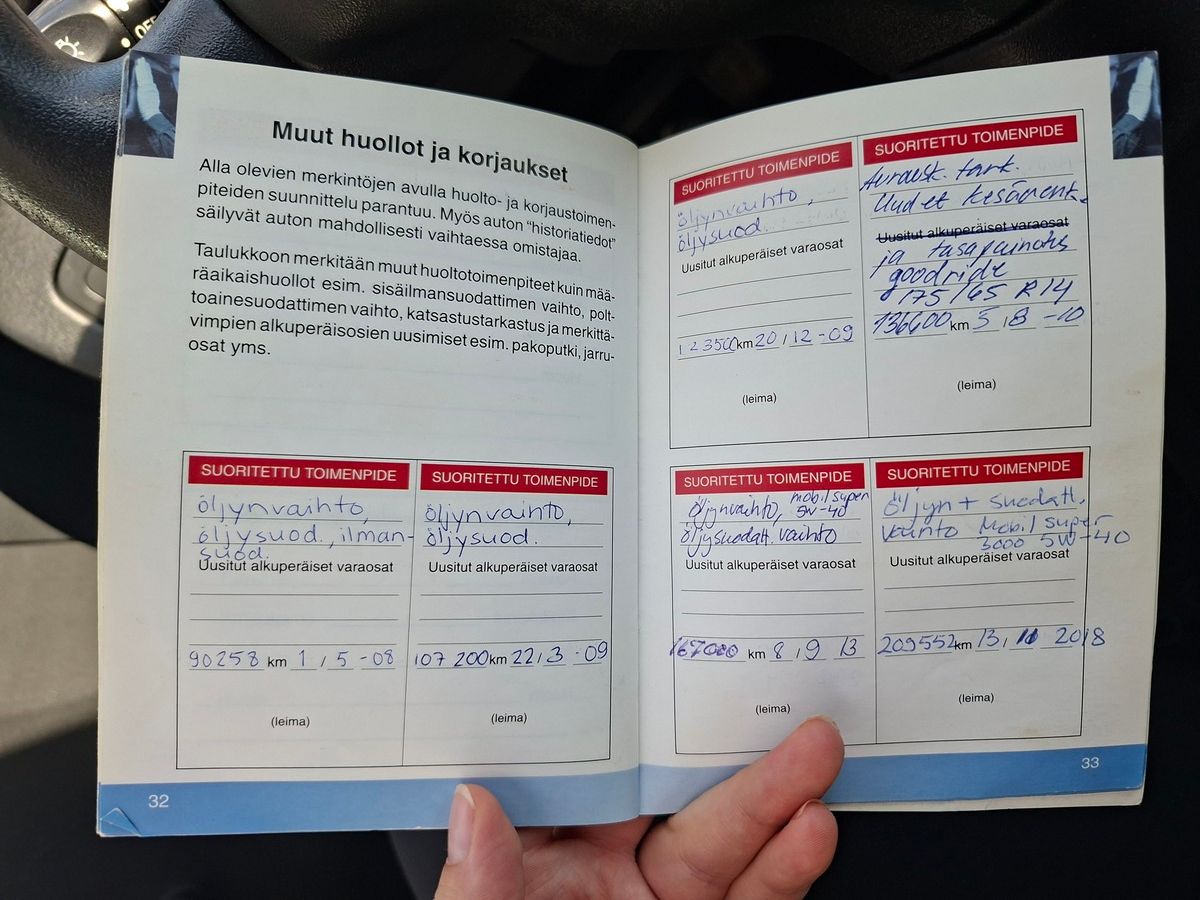 Muut huollot ja korjaukset
Alla olevien merkintöjen avulla huolto- ja korjaustoimen-
piteiden suunnittelu parantuu. Myös auton "historiatiedot"
säilyvät auton mahdollisesti vaihtaessa omistajaa.
Taulukkoon merkitään muut huoltotoimenpiteet kuin mää-
räaikaishuollot esim. sisäilmansuodattimen vaihto, polt-
toainesuodattimen vaihto, katsastustarkastus ja merkittä-
vimpien alkuperäisosien uusimiset esim. pakoputki, jarru-
osat yms.
SUORITETTU TOIMENPIDE
öljynvaihto,
öljysuod., ilman-
suod.
Uusitut alkuperäiset varaosat
90258 km 1 / 5 -08
(leima)
SUORITETTU TOIMENPIDE
öljynvainto,
öljysuod.
Uusitut alkuperäiset varaosat
107 200 km 22 / 3 -09
(leima)
32
SUORITETTU TOIMENPIDE
öljynvaihto,
öljysuod.
Uusitut alkuperäiset varaosat
123500 km 20 / 12 -09
(leima)
SUORITETTU TOIMENPIDE
tark.
Uudet kesärenk.
Uusitut alkuperäiset varaosat
ja tasapainotus
goodride
175/65 R14
136600 km 5 / 8 -10
(leima)
SUORITETTU TOIMENPIDE
öljynvaihto, mobil super
5W-40
öljysuodatt. vaihto
Uusitut alkuperäiset varaosat
167000 km 8 / 9 13
(leima)
SUORITETTU TOIMENPIDE
öljyn + suodatt.
vaihto Mobil super
3000 5W-40
Uusitut alkuperäiset varaosat
209552 km 13 / 2018
(leima)
33